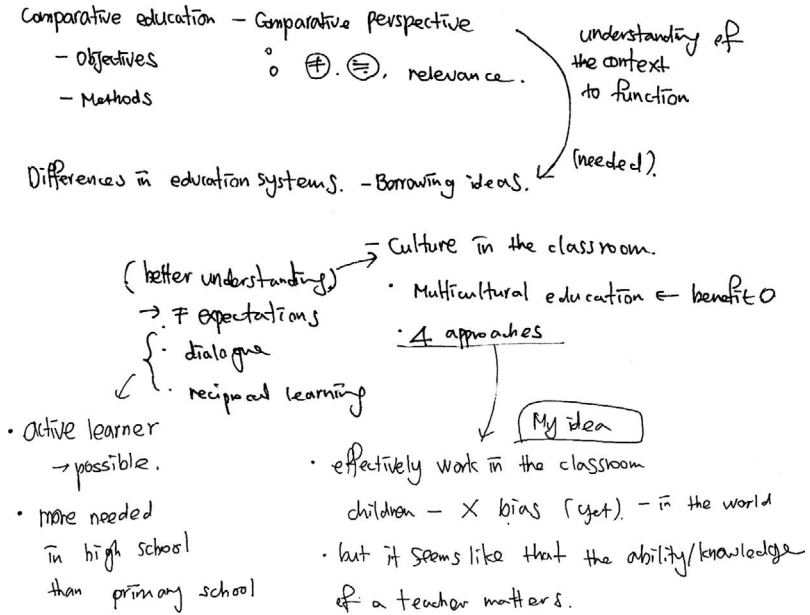 Comparative education - Comparative perspective
- Objectives
- Methods
: ≠. ≒, relevance.
understanding of
the context
to function
(needed).
Differences in education systems. - Borrowing ideas.
(better understanding)
→ ≠ expectations
· dialogue
· reciprocal learning
- Culture in the classroom.
· Multicultural education ← benefit O
· 4 approaches
· active learner
→ possible.
· more needed
in high school
than primary school
My idea
· effectively work in the classroom
children - X bias (yet). - in the world
· but it seems like that the ability/knowledge
of a teacher matters.